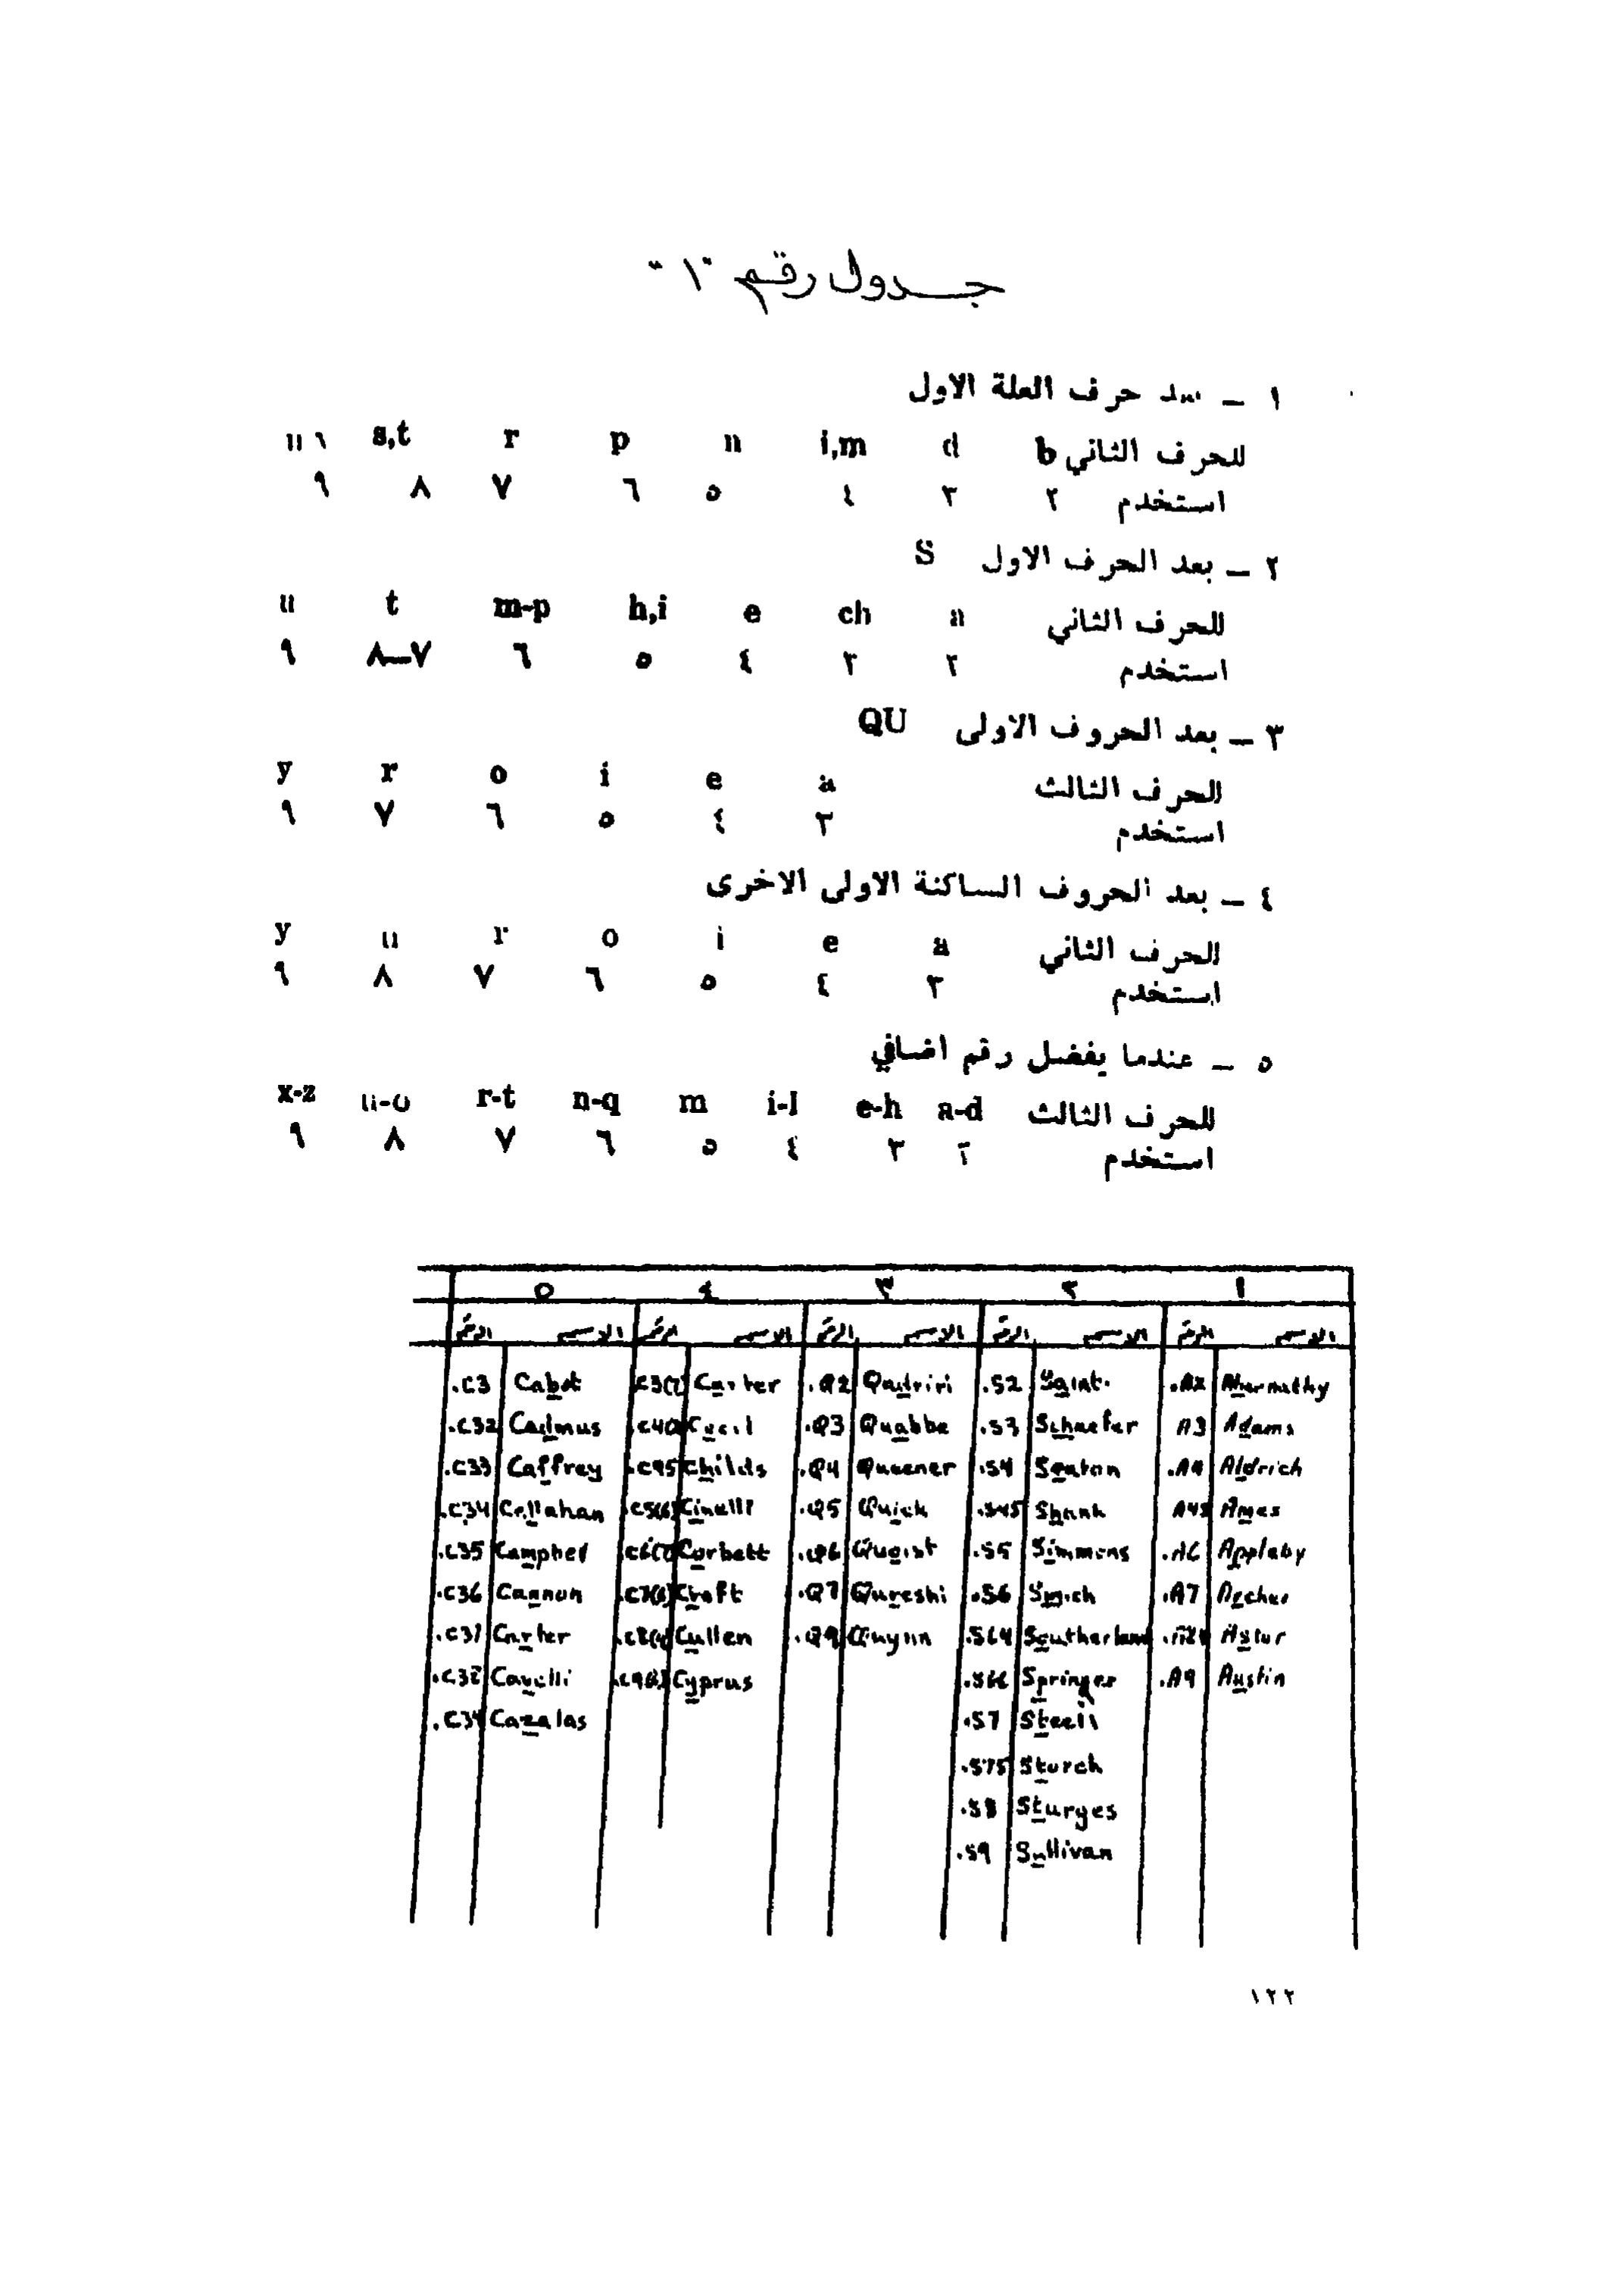 جدول رقم "١"
١ – بعد حرف العلة الاول
للحرف الثاني b d i,m n p r s,t
استخدم ٢ ٣ ٤ ٥ ٦ ٧ ٨ ٩
٢ – بعد الحرف الاول S
للحرف الثاني a ch e h,i m-p t u
استخدم ٢ ٣ ٤ ٥ ٦ ٧–٨ ٩
٣ – بعد الحروف الاولى QU
للحرف الثالث a e i o r y
استخدم ٣ ٤ ٥ ٦ ٧ ٩
٤ – بعد الحروف الساكنة الاولى الاخرى
للحرف الثاني a e i o r u y
استخدم ٣ ٤ ٥ ٦ ٧ ٨ ٩
٥ – عندما يفضل رقم اضافي
للحرف الثالث a-d e-h i-l m n-q r-t x-z
استخدم ٢ ٣ ٤ ٥ ٦ ٧ ٨ ٩
١ ٢ ٣ ٤ ٥
الاسم الرقم الاسم الرقم الاسم الرقم الاسم الرقم الاسم الرقم
.A2 .S2 Qadriri .Q2 Carter Cabot .C3
Adams A3 Schaefer .S3 Quabbe .Q3 Cecil Cadmus .C32
Aldrich .A4 Seaton .S4 Queener .Q4 Childs Caffrey .C33
Ames A45 Shank .S45 Quick .Q5 Cinelli Callahan .C34
Appleby .A6 Simmons .S5 Quoist .Q6 Corbett .C35
Archer .A7 Smith .S6 Qureshi .Q7 Craft Cannon .C36
Astor Southerland .S64 Quynn .Q9 Cullen Carter .C37
Austin .A9 Springer .S66 Cyprus Cavelli
.S7 Cazalas
Sturch .S75
Sturges .S8
Sullivan .S9
١٢٢